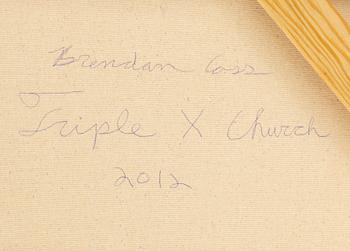 Brendan Cass
Triple X Church
2012